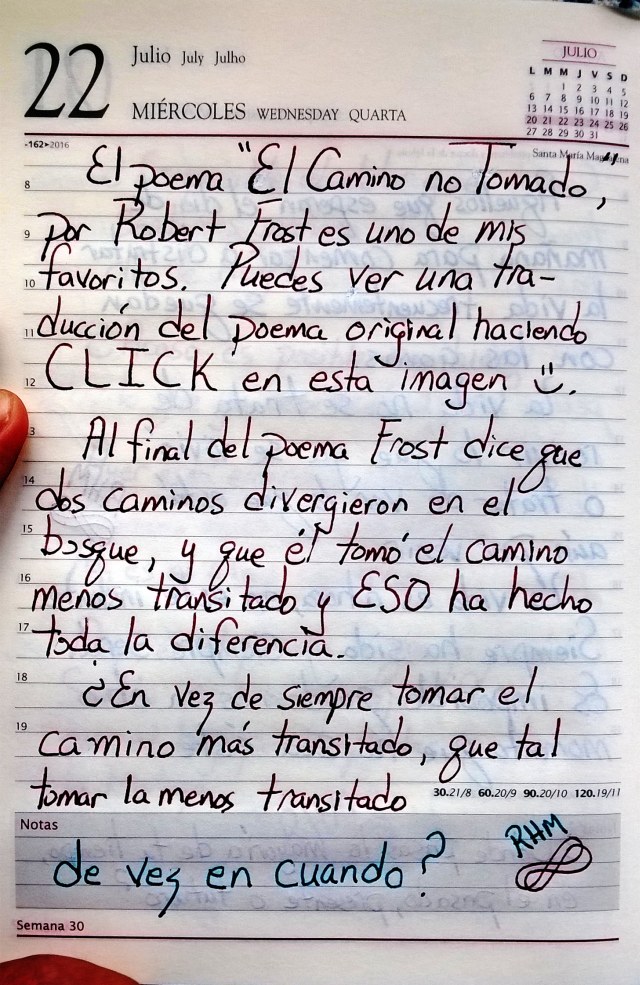 22
Julio July Julho
MIÉRCOLES WEDNESDAY QUARTA
JULIO
L M M J V S D
1 2 3 4 5
6 7 8 9 10 11 12
13 14 15 16 17 18 19
20 21 22 23 24 25 26
27 28 29 30 31
-162▸2016
Santa María
El poema "El Camino no Tomado,
8
9 por Robert Frost es uno de mis
10 favoritos. Puedes ver una tra-
11 ducción del poema original haciendo
12 CLICK en esta imagen
3 Al final del poema Frost dice que
14 dos caminos divergieron en el
15 bosque, y que él tomó el camino
16 menos transitado y ESO ha hecho
17 toda la diferencia.
18 ¿En vez de siempre tomar el
19 camino más transitado, que tal
tomar la menos transitado
30.21/8 60.20/9 90.20/10 120.19/11
Notas
RHM
de vez en cuando?
Semana 30